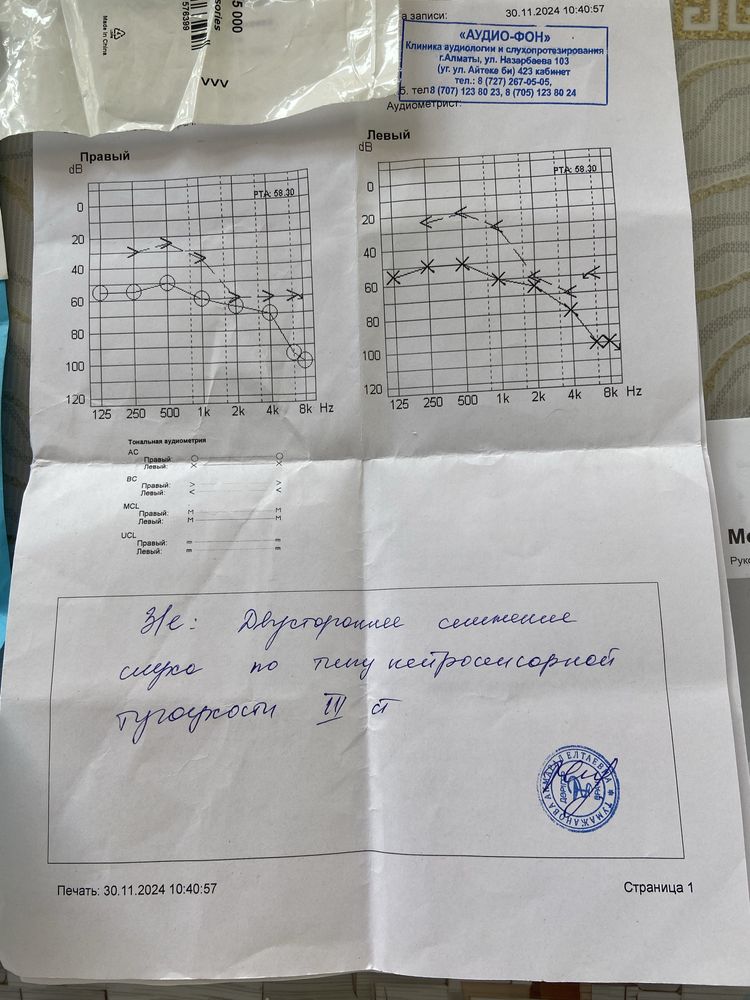 5 000
sories
576399
Made in China
VVV
а записи: 30.11.2024 10:40:57
«АУДИО-ФОН»
Клиника аудиологии и слухопротезирования
г.Алматы, ул. Назарбаева 103
(уг. ул. Айтеке би) 423 кабинет
тел.: 8 (727) 267-05-05,
б. тел8 (707) 123 80 23, 8 (705) 123 80 24
Аудиометрист:
Правый
dB
PTA: 58.30
0
20
40
60
80
100
120
125 250 500 1k 2k 4k 8k Hz
Левый
dB
PTA: 58.30
0
20
40
60
80
100
120
125 250 500 1k 2k 4k 8k Hz
Тональная аудиометрия
AC
Правый:
Левый:
BC
Правый:
Левый:
MCL
Правый: M M
Левый: M M
UCL
Правый: m m
Левый: m m
З/е: Двустороннее снижение
слуха по типу нейросенсорной
тугоухости III ст
ТУМАЖАНОВА АКМАРАЛ ЕЛТАЕВНА
ДӘРІГЕР
ВРАЧ
Печать: 30.11.2024 10:40:57
Страница 1
Ме
Руко